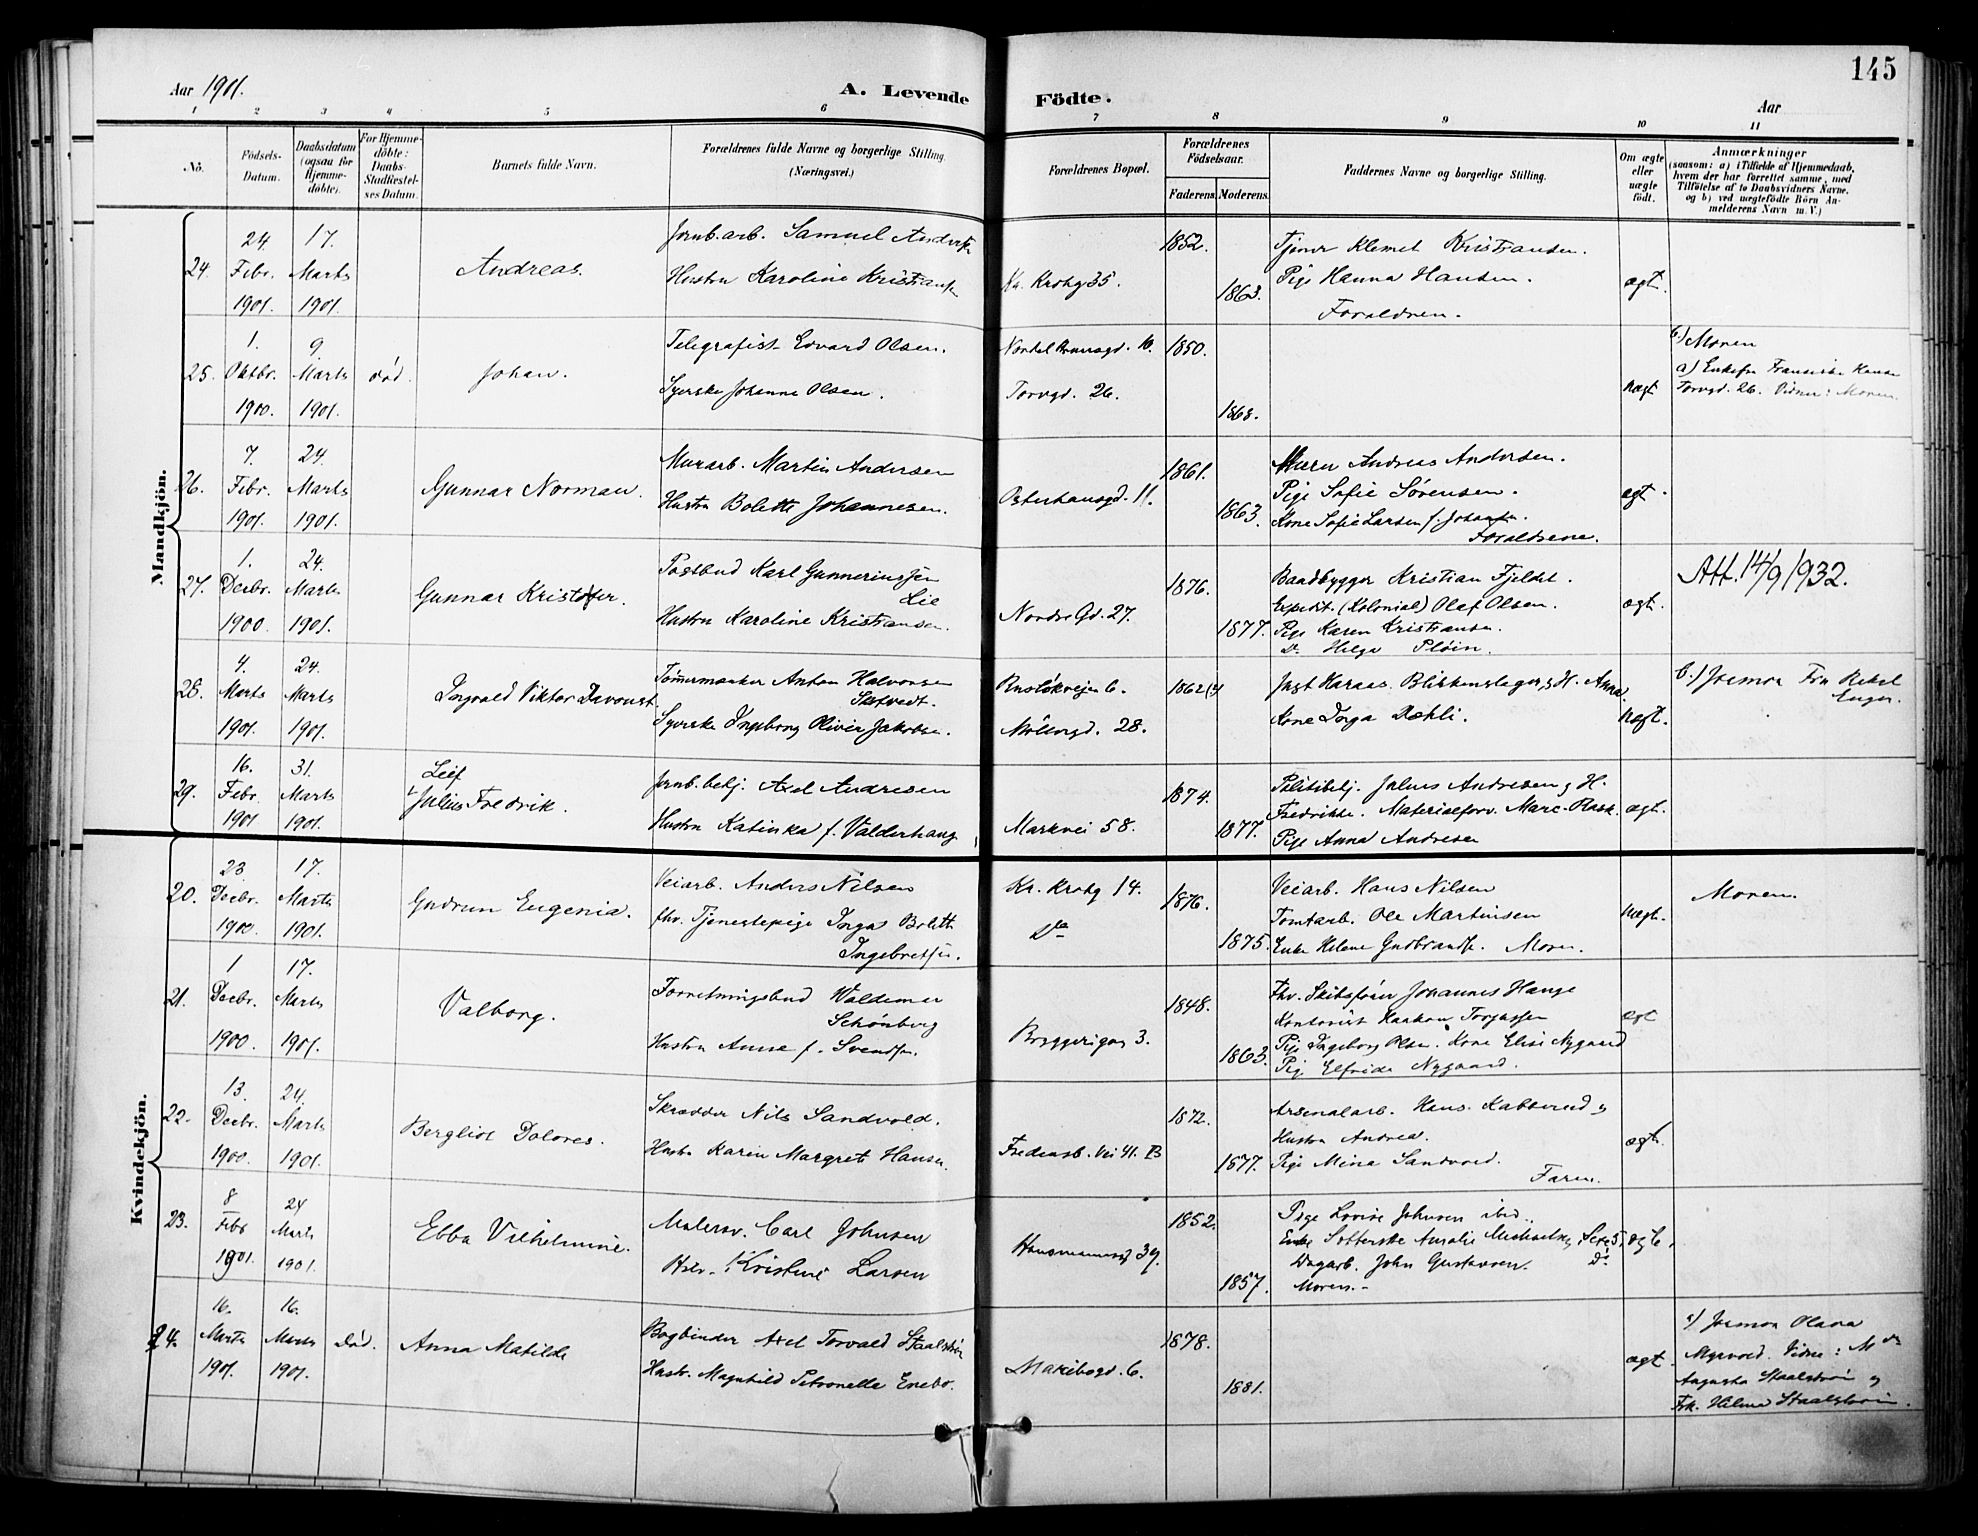 145
Aar 1901.
A. Levende Födte.
Aar
1 2 3 4 5 6 7 8 9 10 11
No.
Födsels-Datum.
Daabsdatum (ogsaa for Hjemme-döbte).
For Hjemme-döbte: Daabs-Stadfæstel-ses Datum.
Barnets fulde Navn.
Forældrenes fulde Navne og borgerlige Stilling. (Næringsvei.)
Forældrenes Bopæl.
Forældrenes Födselsaar.
Faderens. Moderens.
Faddernes Navne og borgerlige Stilling.
Om ægte eller uægte födt.
Anmærkninger
(saasom: a) i Tilfælde af Hjemmedaab, hvem der har forrettet samme, med Tilföielse af to Daabsvidners Navne, og b) ved uægtefödte Börn An-melderens Navn m. V.)
Mandkjön.
24. 24. Febr. 1901. 17. Marts 1901.
Andreas.
Jernb.arb. Samuel
Hustru Karoline
35.
1852. 1863.
Tjener Klemet Kristiansen.
Pige Hanna Hansen.
Forældren.
ægt.
25. 1. Oktbr. 1900. 9. Marts 1901. død.
Johan.
Telegrafist Edvard Olsen.
Syerske Johanne Olsen.
Torvgd. 26.
1850. 1868.
uægt
b) Moren
a) Enkefru
Torvgd. 26. Vidner: Moren.
26. 7. Febr. 1901. 24. Marts 1901.
Gunnar Norman.
Murarb. Martin Andersen
Hustru Bolette Johannesen.
Osterhausgd. 11.
1861. 1863.
Murer Andreas Andersen.
Pige Sofie Sørensen.
Kone Sofie Larsen f.
Forældrene.
ægt.
27. 1. Decbr. 1900. 24. Marts 1901.
Gunnar Kristofer.
Postbud Karl Gunneriussen
Lie
Hustru Karoline Kristiansen.
Nordre Gd. 27.
1876. 1877.
Baadbygger Kristian Fjeldet.
Expedit. (Kolonial) Olaf Olsen.
Pige Karen Kristiansen.
Do Helga
ægt.
Att. 14/9 1932.
28. 4. Marts 1901. 24. Marts 1901.
Ingvald Viktor
Tømmermester Anton Halvorsen
Syerske Ingeborg Olivie Jakobsen.
Ruseløkveien 6.
Møllergd. 28.
1862
Blikkenslager, og H. Anna,
Kone Inga Dæhli.
uægt.
b.) Jormor Fru
29. 16. Febr. 1901 31. Marts 1901.
Leif
Julius Fredrik.
Jernb.betj. Axel Andresen
Hustru Katinka f. Valderhaug
Markvei 58.
1874. 1877.
Politibetj. Julius Andresen og H.
Fredrikke. Materialforv.
Pige Anna Andresen
ægt.
Kvindekjön.
20. 23. Decbr. 1900. 17. Marts 1901.
Gudrun Eugenia.
Veiarb. Anders Nilsen
fhv. Tjenestepige Inga Bolette
Ingebretsen.
Kr. Krohg 14.
Do
1876. 1875.
Veiarb. Hans Nilsen
Tomtarb. Ole Martinsen
Enke Helene Gudbrands. Moren.
uægt.
Moren.
21. 1 Decbr. 1900. 17. Marts 1901.
Valborg.
Forretningsbud Waldemar
Schønberg
Hustru Anne f. Svendsen.
Bryggerigaden 3.
1848. 1863.
Fhv. Skibsfører Johannes Hauge
Kontorist Haakon Torgussen
Pige Ingeborg Olsen. Kone Elise Nygaard
Pige Elfride Nygaard.
ægt
22. 13. Decbr. 1900. 24. Marts 1901.
Bergliot Dolores.
Skrædder Nils Sandvold.
Hustru Karen Margrete Hansen.
Fredensb. vei 41. B
1872. 1877.
Arsenalarb. Hans og
Hustru Andrea.
Pige Mina Sandvold.
Faren.
ægt.
23. 8 Febr 1901. 24 Marts 1901.
Ebba Vilhelmine.
Malersv. Carl Johnsen
Hstr. Kristine Larsen
Hausmannsgd 39.
1852. 1857.
Pige Lovise Johnsen ibid.
Dagarb. John Gustavsen. Do
Moren.
ægte.
24. 16. Marts 1901. 16. Marts 1901. død.
Anna Matilde
Bogbinder Axel Torvald Staalstrøm
Hustr. Magnhild Petronelle Enebo.
Maribogd. 6.
1878. 1881.
ægt.
a) Jormor Olava
Myrvold. Vidner:
Augusta Staalstrøm og
Frk. Hilma Staalstrøm.